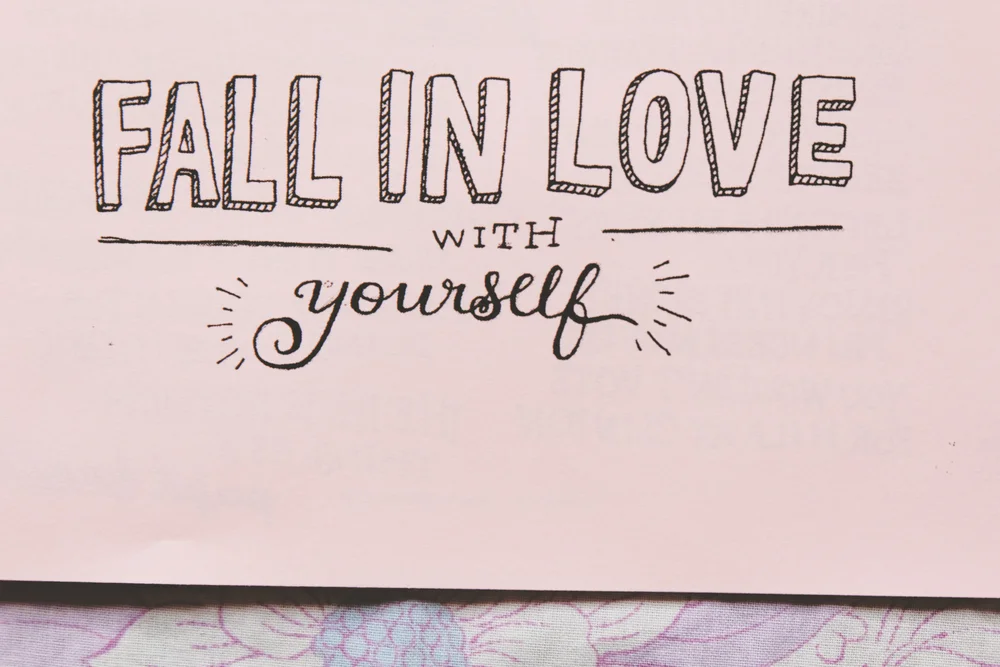 FALL IN LOVE
WITH
yourself